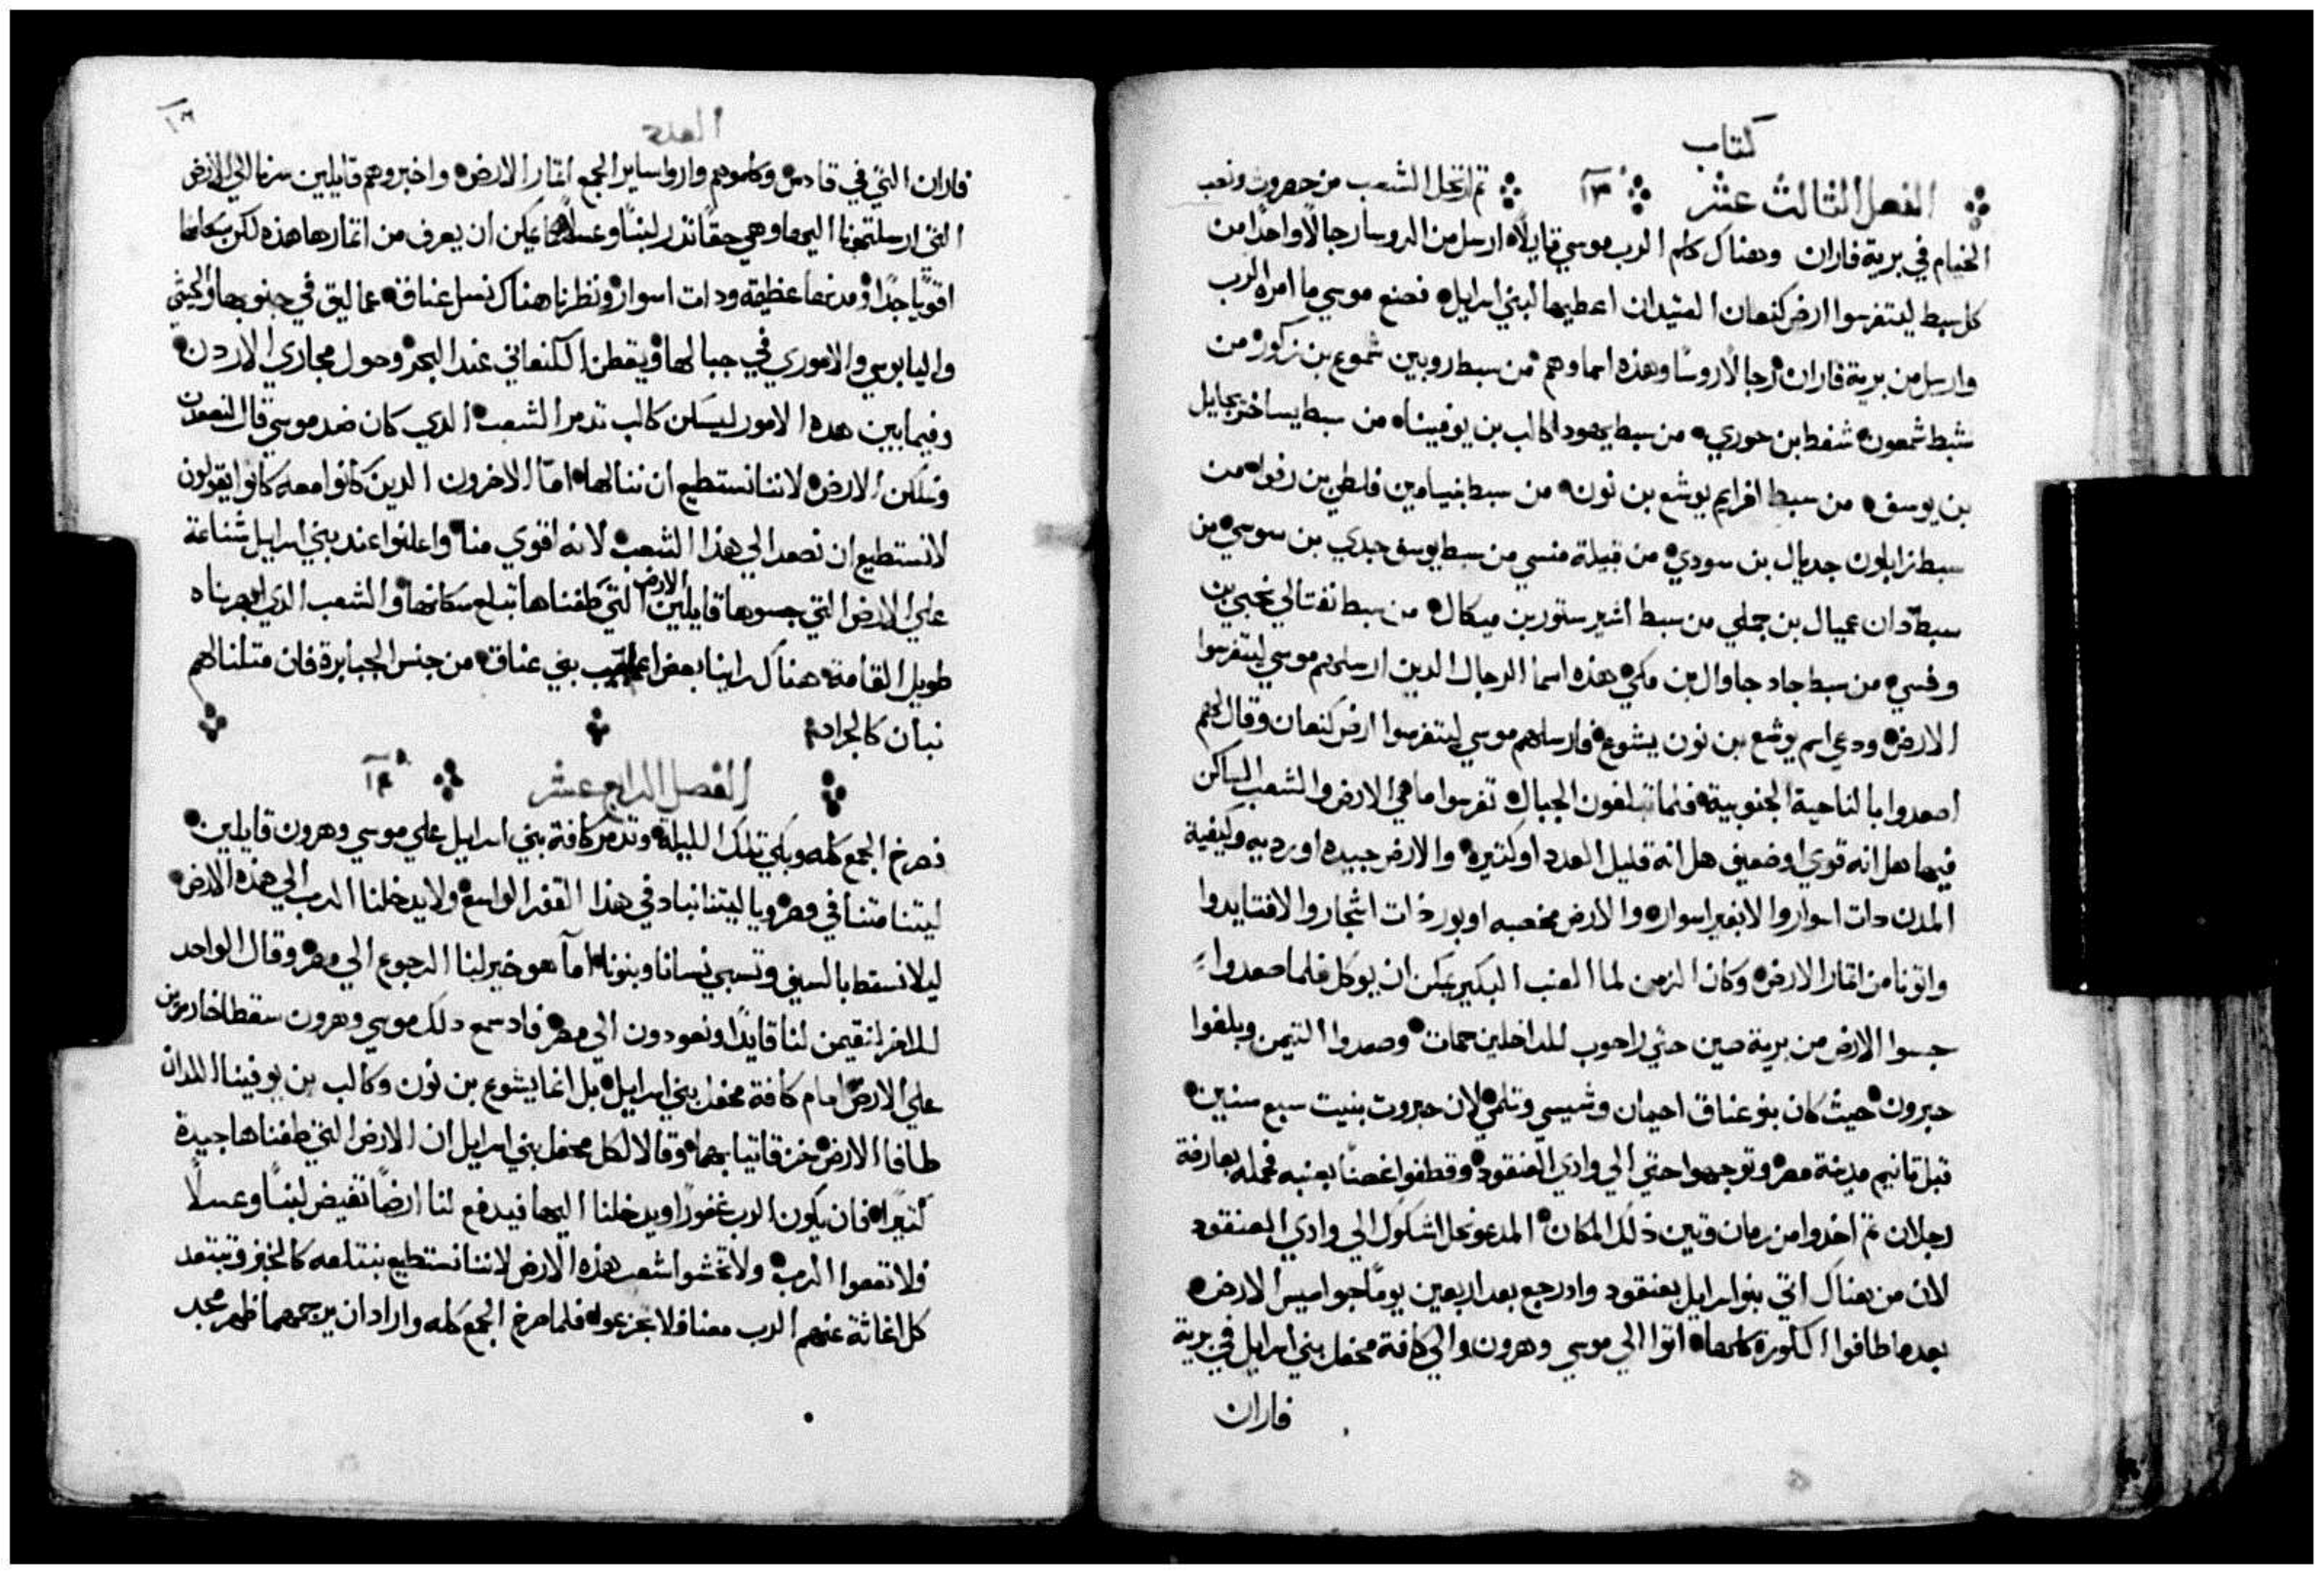 كتاب
الفصل الثالث عشر ١٣ ثم ارتحل الشعب من حصروت ونصب
الخيام في برية فاران وهناك كلم الرب موسي قايلاً ارسل من الروسا رجالاً واحداً من
كل سبط ليتفرسوا ارض كنعان العتيدان اعطيها لبني اسرايل فصنع موسي ما امره الرب
وارسل من برية فاران رجالاً روسًا وهذه اسماوهم من سبط روبين شموع بن زكور من
شبط شمعون شفط ابن حوري من سبط يهودا كالب بن يوفينا من سبط يساخر يجايل
بن يوسف من سبط افرايم يوشع بن نون من سبط بنيامين فلطي بن رفو من
سبط زابلون جديال بن سودي من قبيلة منسي من سبط يوسف جدي بن سوسي من
سبط دان عميال بن جملي من سبط اشير ستور بن ميكال من سبط نفتالي نحبي بن
وفسي من سبط جاد جاوال بن مكي هذه اسما الرجال الدين ارسلهم موسي ليتفرسوا
الارض ودعي اسم يوشع بن نون يشوع فارسلهم موسي ليتفرسوا ارض كنعان وقال لهم
اصعدوا بالناحية الجنوبية فلما تبلغون الجبال تفرسوا ما هي الارض والشعب الساكن
فيها هل انه قوي او ضعيف هل انه قليل العدد او كتيره والارض جيده او رديه وكيفية
المدن دات اسوار والا بغير اسوار والارض مخصبه او بور ذات اشجار والا فتايدوا
واتونا من اتمار الارض وكان الزمن لما العنب البكير يمكن ان يوكل فلما صعدوا
جسوا الارض من برية صين حتي راحوب للداخلين حمات وصعدوا التيمن وبلغوا
حبرون حيث كان بنو عناق احيمان وشيسي وتلمي لان حبروت بنيت سبع سنين
قبل تانيم مدينة مصر وتوجهوا حتي الي وادي العنقود وقطفوا غصنًا بعنبه فحمله بعارضة
رجلان تم اخدوا من رمان وتين ذلك المكان المدعو نحل اشكول الي وادي العنقود
لان من هناك اتي بنو اسرايل بعنقود واد رجع بعد اربعين يومًا جواسيس الارض
بعدما طافوا الكورة كلها اتوا الي موسي وهرون والي كافة محفل بني اسرايل في برية
فاران
العدد
فاران التي في قادس وكلموهم واروا ساير الجمع اتمار الارض واخبروهم قايلين سرنا الي الارض
التي ارسلتمونا اليها وهي حقًا تدر لبنًا وعسلاً يمكن ان يعرف من اتمارها هذه لكن سكانها
اقويا جدًا ومدنها عظيمه ودات اسوار ونظرنا هناك نسل عناق عماليق في جنوبها والحيثي
واليابوسي والاموري في جبالها ويقطن الكنعاني عند البحر وحول مجاري الاردن
وفيما بين هده الامور ليسكن كالب تدمر الشعب الدي كان ضد موسي قال لنصعدن
ونملكن الارض لاننا نستطيع ان ننالها امّا الاخرون الدين كانوا معه كانوا يقولون
لا نستطيع ان نصعد الي هذا الشعب لانه اقوي منا واعلنوا عند بني اسرايل شناعة
علي الارض التي جسوها قايلين الارض التي طفناها تبلع سكانها والشعب الدي ابصرناه
طويل القامة هناك راينا بعض بني عناق من جنس الجبابرة فان متلنا لهم
نبان كالجراد
الفصل الرابع عشر ١٤
فصرخ الجمع كله وبكي تلك الليلة وتدمر كافة بني اسرايل علي موسي وهرون قايلين
ليتنا متنا في مصر ويا ليتنا نباد في هذا القفر الواسع ولا يدخلنا الرب الي هذه الارض
ليلا نسقط بالسيف وتسبي نسانا وبنونا اما هو خير لنا الرجوع الي مصر وقال الواحد
للاخر لنقيمن لنا قايدًا ونعودون الي مصر فاد سمع دلك موسي وهرون سقطا خارين
علي الارض امام كافة محفل بني اسرايل بل انما يشوع بن نون وكالب بن يوفينا اللدان
طافا الارض خزقا تيابهما وقالا لكل محفل بني اسرايل ان الارض التي طفناها جيدة
كتيرًا فان يكون الرب غفورًا ويدخلنا اليها فيدفع لنا ارضًا تفيض لبنًا وعسلاً
فلا تعصوا الرب ولا تخشوا شعب هذه الارض لاننا نستطيع نبتلعه كالخبز وتبتعد
كل اغاثة عنهم الرب معنا فلا تجزعوا فلما صرخ الجمع كله واراد ان يرجمهما ظهر مجد